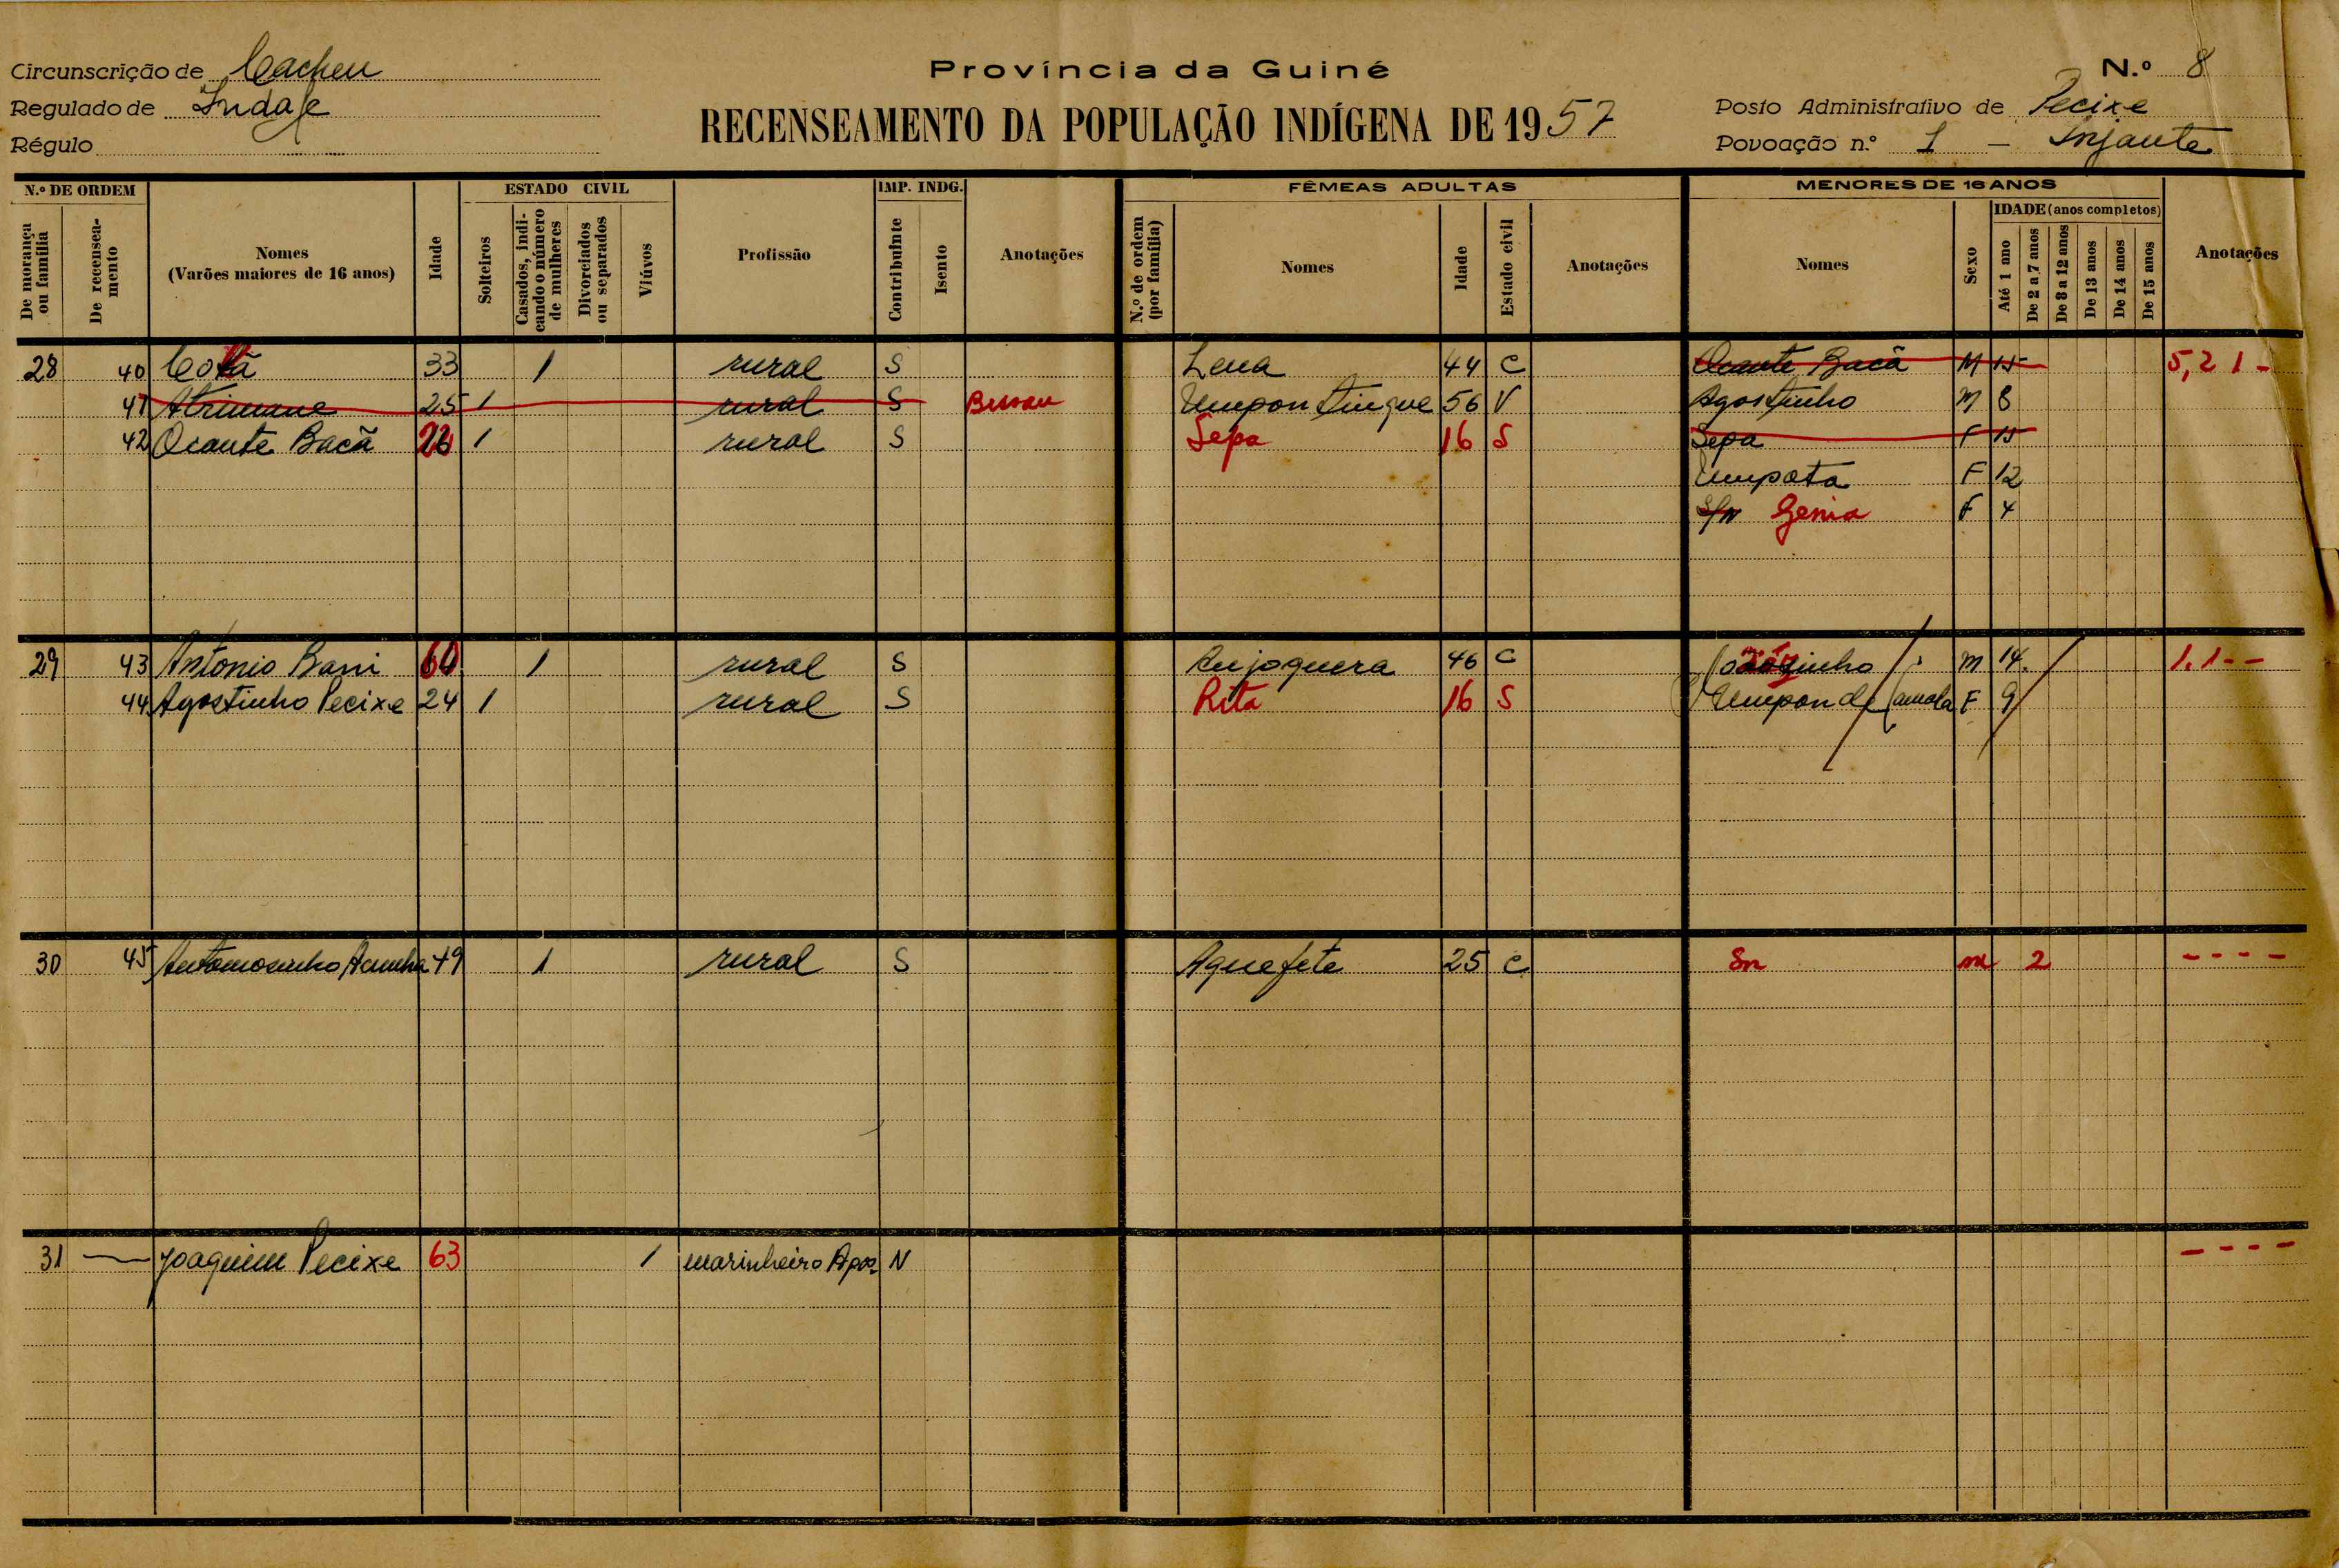 Circunscrição de Cacheu
Regulado de Indafe
Régulo
Província da Guiné
RECENSEAMENTO DA POPULAÇÃO INDÍGENA DE 1957
N.º 8
Posto Administrativo de Pecixe
Povoação n.º 1 - Injante
N.º DE ORDEM
De morança ou família
De recenseamento
Nomes
(Varões maiores de 16 anos)
Idade
ESTADO CIVIL
Solteiros
Casados, indicando o número de mulheres
Divorciados ou separados
Viúvos
Profissão
IMP. INDG.
Contribuinte
Isento
Anotações
FÊMEAS ADULTAS
N.º de ordem (por família)
Nomes
Idade
Estado civil
Anotações
MENORES DE 16 ANOS
Nomes
Sexo
IDADE (anos completos)
Até 1 ano
De 2 a 7 anos
De 8 a 12 anos
De 13 anos
De 14 anos
De 15 anos
Anotações
28 40 33 1 rural S Lena 44 C Ocante Bacã M 15 5, 2 1 -
41 Atrimane 25 1 rural S Bissau Umpontinque 56 V Agostinho M 8
42 Ocante Bacã 1 rural S Sepa 16 S Sepa F 15
Umpata F 12
S/n Genia F 4
29 43 Antonio Bani 1 rural S 46 C M 14 1. 1 - -
44 Agostinho Pecixe 24 1 rural S Rita 16 S F 9
30 45 49 1 rural S Aquefete 25 C Sn m 2 - - - -
31 — Joaquim Pecixe 63 1 marinheiro Apos. N - - - -